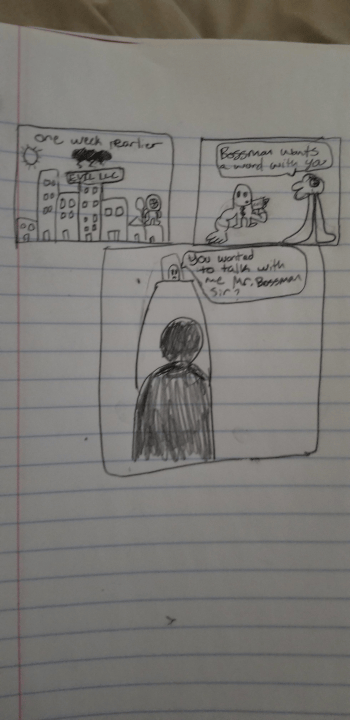 one week rearlier
EVIL LLC
Bossman wants
a word with you
You wanted
to talk with
me Mr. Bossman
Sir?